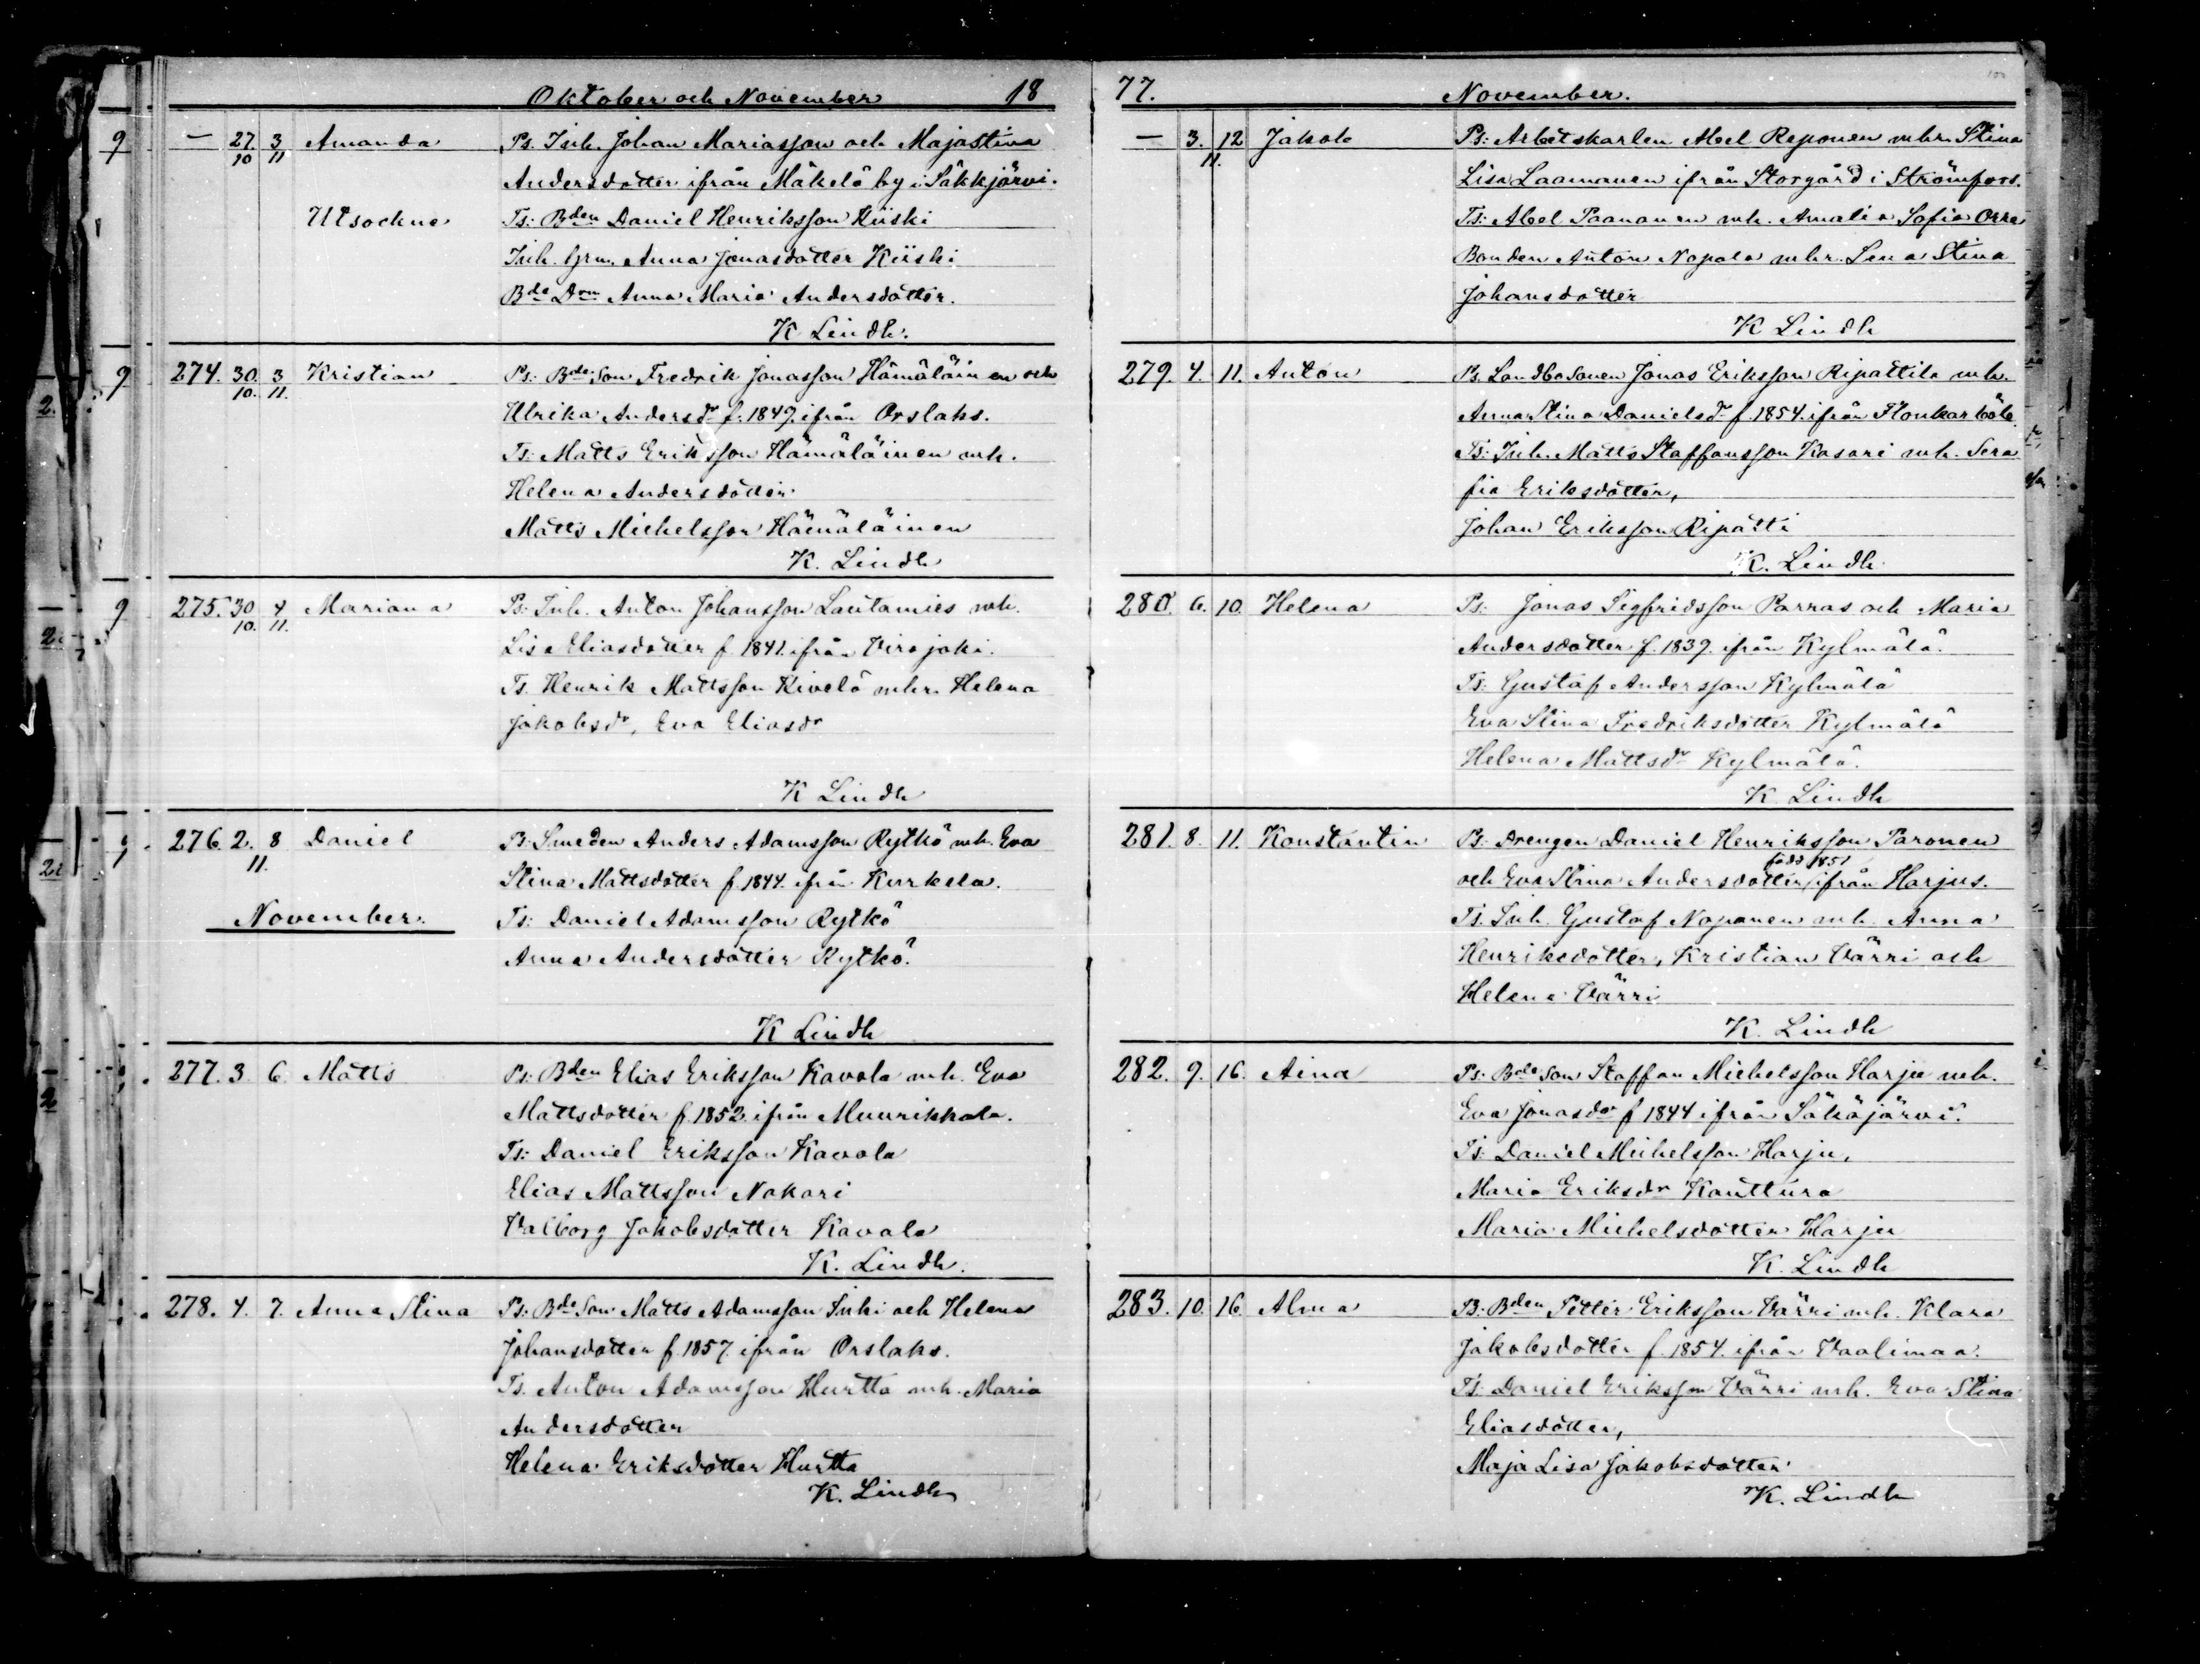 Oktober och November 18
— 27/10 3/11 Amanda Ps. Inh. Johan Mariasson och Majastina
Andersdotter ifrån Mäkelä by i Säkkjärvi.
Utsockne Ts: Bden Daniel Henriksson Kiiski
Inh. Anna Jonasdotter Kiiski
Bde Don Anna Maria Andersdotter.
K Lindh.
274. 30/10. 3/11. Kristian Ps: Bde Son Fredrik Jonasson Hämäläinen och
Ulrika Andersdr f. 1849. ifrån Orslaks.
Ts: Matts Eriksson Hämäläinen mh.
Helena Andersdotter
Matts Michelsson Hämäläinen
K. Lindh
275. 30/10. 4/11. Mariana Ps: Inh. Anton Johansson Lautamies mh.
Lisa Eliasdotter f. 1841. ifrån Virojoki.
Ts. Henrik Mattsson Kivelä mhr. Helena
Jakobsdr, Eva Eliasdr
K Lindh
276. 2./11. 8 Daniel Ps: Smeden Anders Adamsson Rytkö mh. Eva
Stina Mattsdotter f. 1844. ifrån Kurkela.
November. Ts: Daniel Adamsson Rytkö
Anna Andersdotter Rytkö.
K Lindh
277. 3 6. Matts Ps: Bden Elias Eriksson Kavala mh. Eva
Mattsdotter f. 1852. ifrån Muurikkala.
Ts: Daniel Eriksson Kavala
Elias Mattsson Nakari
Valborg Jakobsdotter Kavala
K. Lindh.
278. 4. 7. Anna Stina Ps: Bde Son Matts Adamsson Inki och Helena
Johansdotter f. 1857. ifrån Orslaks.
Ts. Anton Adamsson Hurtta mh. Maria
Andersdotter
Helena Eriksdotter Hurtta
K. Lindh
77. November.
— 3./11. 12 Jakob Ps: Arbetskarlen Abel Reponen mhr. Stina
Lisa Laamanen ifrån Storgård i Strömfors.
Ts: Abel Paananen mh. Amalia Sofia Orra
Bonden Anton Nopala mhr. Lena Stina
Johansdotter
K Lindh
279. 4. 11. Anton Ps. Landbosonen Jonas Eriksson Ripattila mh.
Anna Stina Danielsdr f. 1854. ifrån
Ts: Inh. Matts Staffansson Kasari mh. Sera
fia Eriksdotter,
Johan Eriksson Ripatti
K. Lindh
280. 6. 10. Helena Ps: Jonas Sigfridsson Parras och Maria
Andersdotter f. 1839. ifrån Kylmälä.
Ts: Gustaf Andersson Kylmälä
Eva Stina Fredriksdotter Kylmälä
Helena Mattsdr Kylmälä.
K. Lindh
281. 8. 11. Konstantin Ps: Drengen Daniel Henriksson Paronen
född 1851
och Eva Stina Andersdotter, ifrån Harjus.
Ts. Inh. Gustaf Noponen mh. Anna
Henriksdotter, Kristian Värri och
Helena Värri
K. Lindh
282. 9. 16. Aina Ps: Bde Son Staffan Michelsson Harju mh.
Eva Jonasdr f 1844 ifrån Säkäjärvi.
Ts: Daniel Michelsson Harju,
Maria Eriksdr Kauttura
Maria Michelsdotter Harju
K. Lindh
283. 10. 16. Alma Ps: Bden Petter Eriksson Värri mh. Klara
Jakobsdotter f. 1854. ifrån Vaalimaa.
Ts: Daniel Eriksson Värri mh. Eva Stina
Eliasdotter,
Maja Lisa Jakobsdotter
K. Lindh